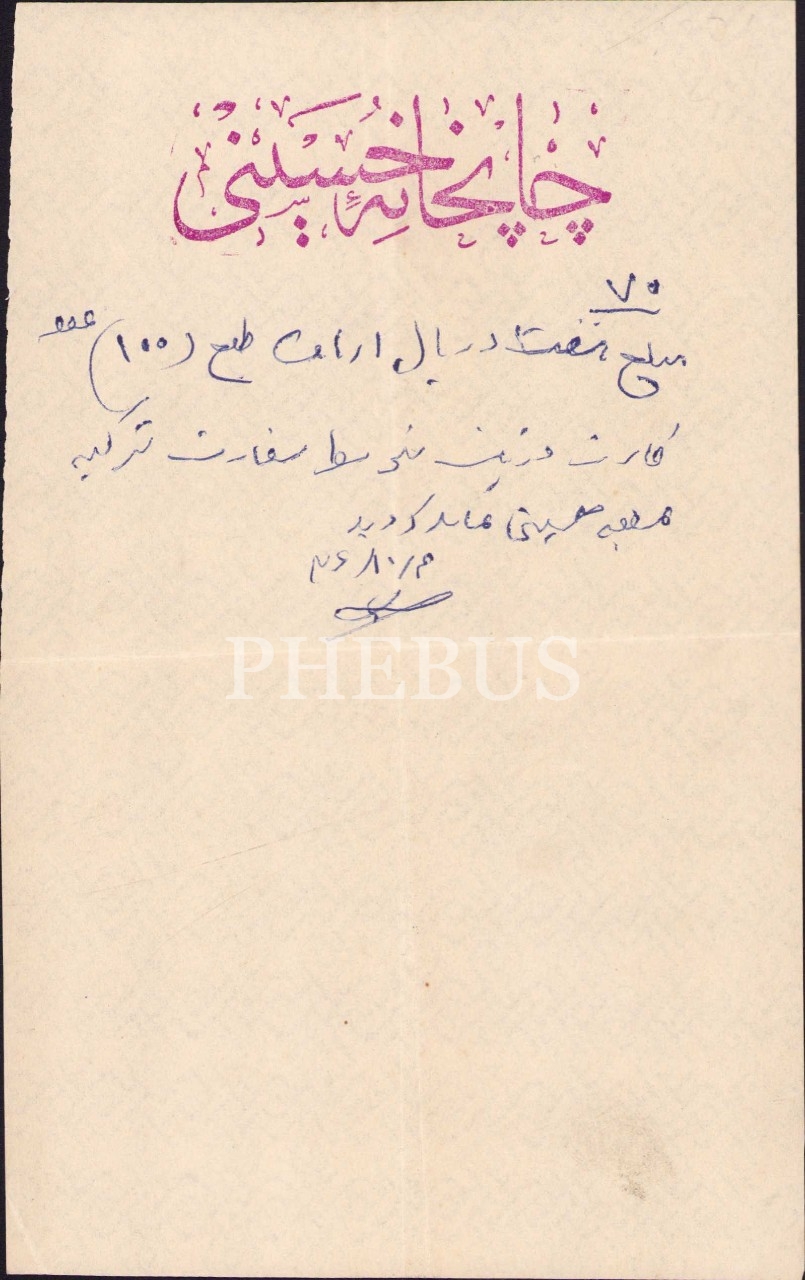 چاپخانهٔ حسینی
۷۰
مبلغ هفتاد ریال از بابت طبع (۱۰۰) عدد
کارت ویزیت توسط سفارت ترکیه
مطبعه حسینی عاید گردید
PHEBUS